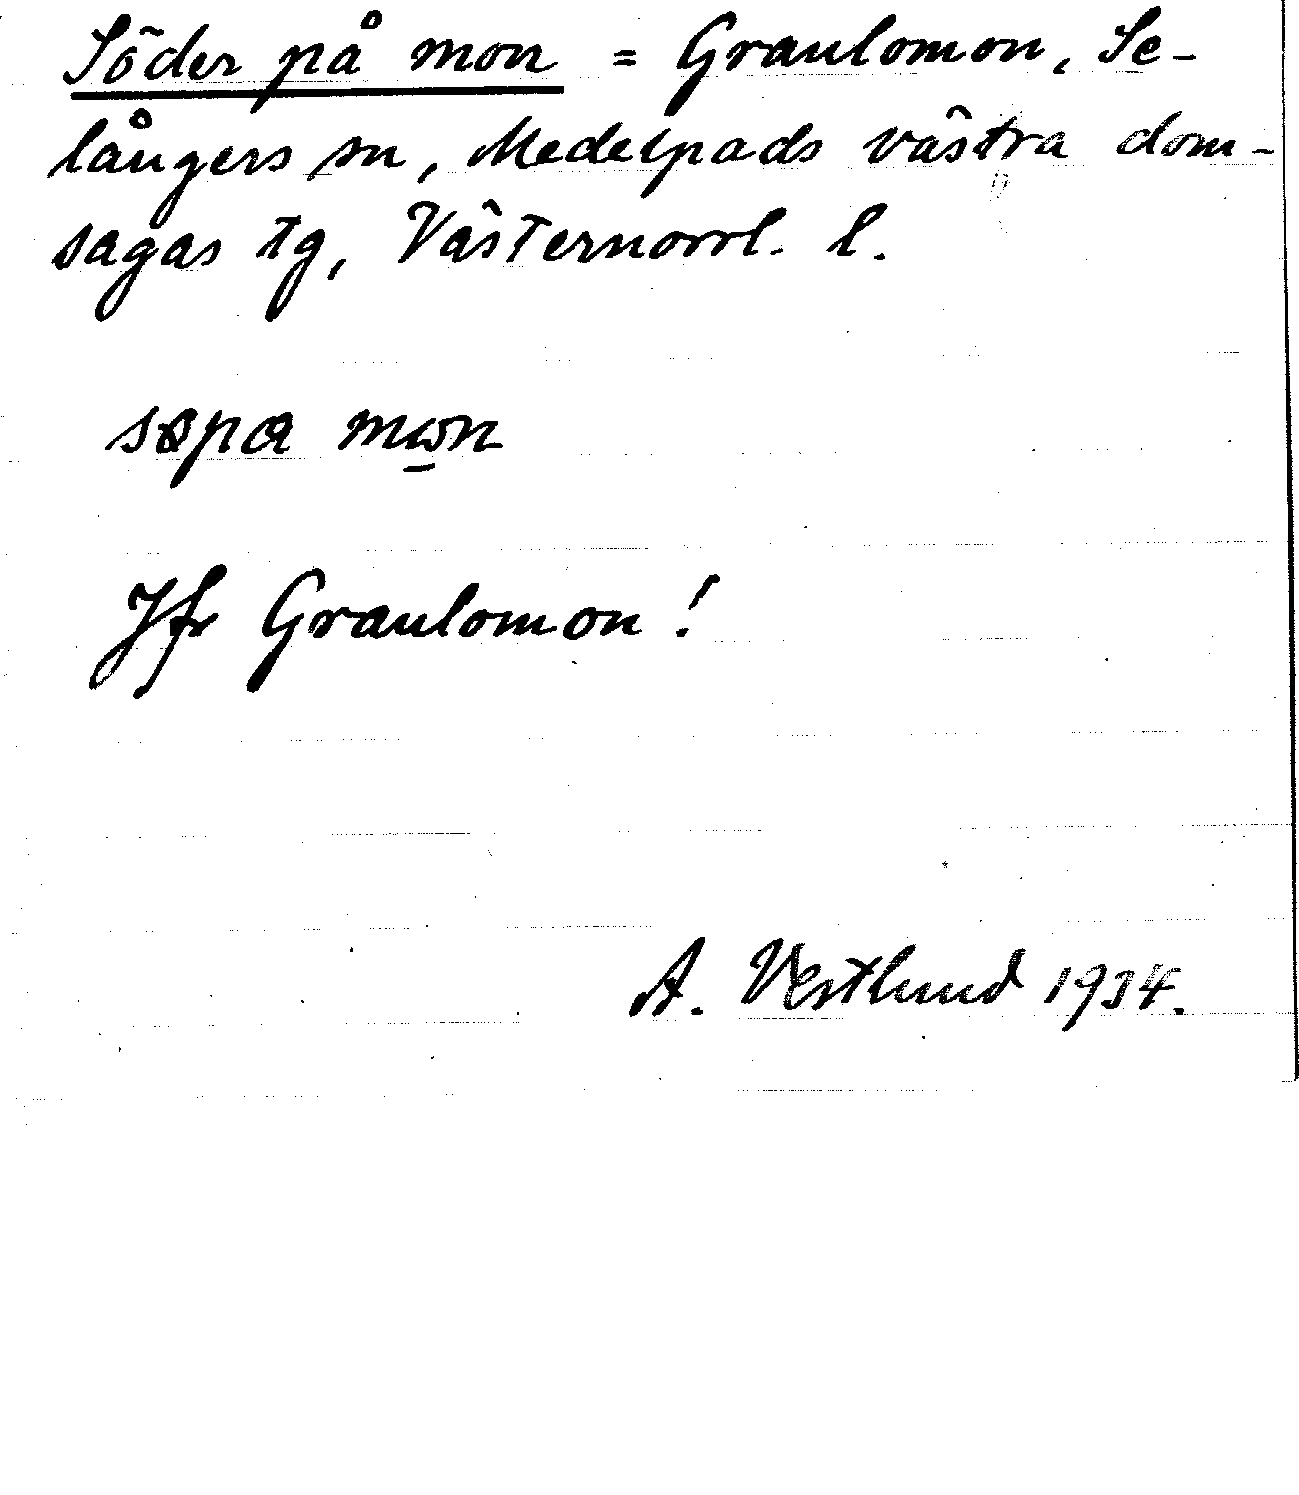 Söder på mon = Graulomon, Se-
långers sn, Medelpads västra dom-
sagas tg, Västernorrl. l.
søpa mωn
Jfr Graulomon!
A. Vestlund 1934.